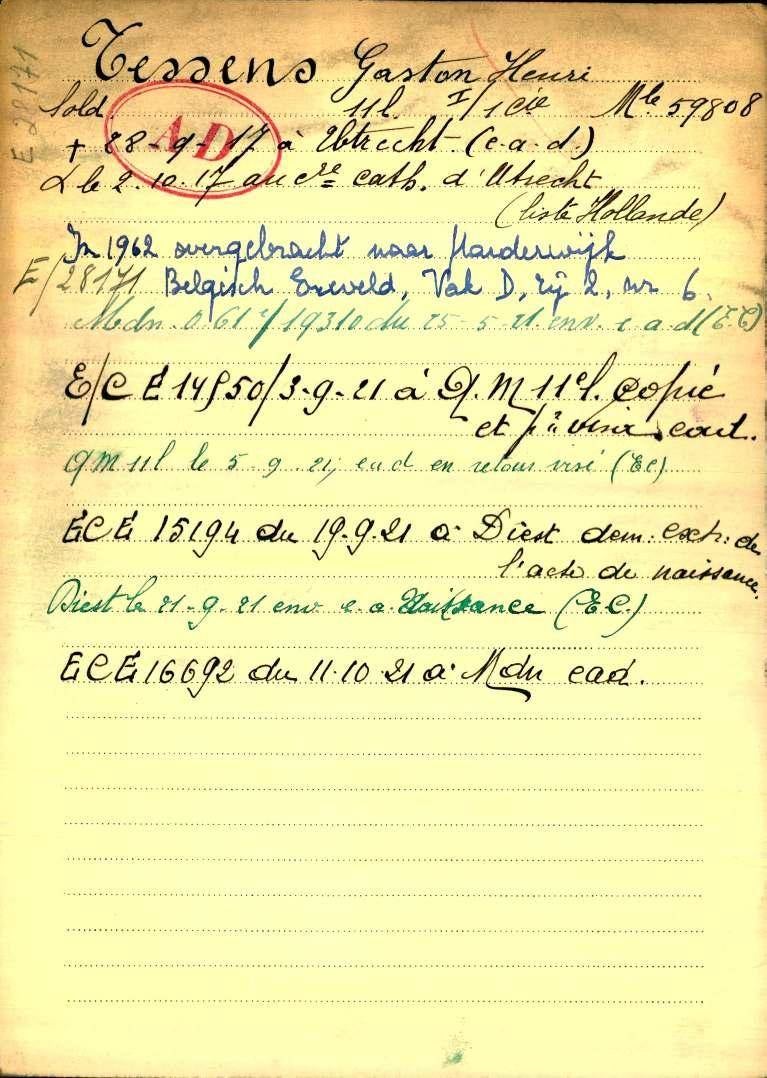 E 28171
Tessens Gaston Henri
Sold. 11l. I/1 cie Mle 59808
AD
+ 28-9-17 à Utrecht (e.a.d.)
le 2.10.17 au cre cath. d'Utrecht
(liste Hollande)
In 1962 overgebracht naar Harderwijk
E/28171 Belgisch Ereveld, Vak D, rij 2, nr 6.
Mdn 0.61 /19310 du 25-5-21 env. e.a.d (E.C)
E/C É 14550/3-9-21 à Q.M 11el. copié
et pr visa eout.
QM 11l le 5-9-21, ead en retour visé (EC)
ECÉ 15194 du 19-9-21 à Diest dem. extr. de
l'acte de naissance.
Diest le 21-9-21 env e.a. Naissance (EC.)
ECÉ 16692 du 11-10-21 à Mdn ead.